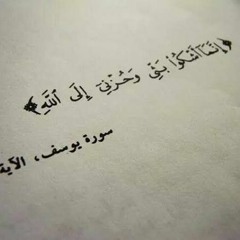 ﴿إِنَّمَا أَشْكُوا بَثِّي وَحُزْنِي إِلَى اللَّهِ﴾
سورة يوسف، الآية